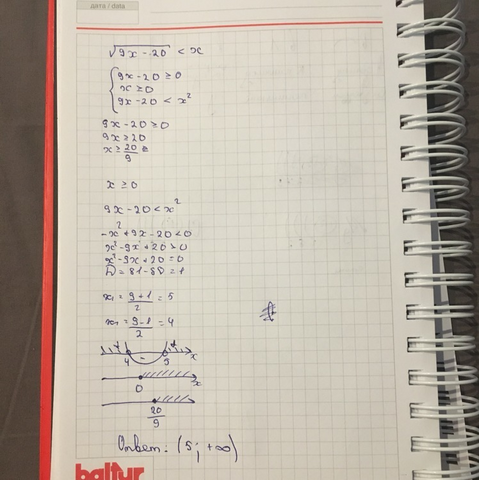 дата / data
√9x - 20 < x
{ 9x - 20 ≥ 0
x ≥ 0
9x - 20 < x²
9x - 20 ≥ 0
9x ≥ 20
x ≥ 20/9
x ≥ 0
9x - 20 < x²
-x² + 9x - 20 < 0
x² - 9x + 20 > 0
x² - 9x + 20 = 0
D = 81 - 80 = 1
x₁ = 9+1/2 = 5
x₂ = 9-1/2 = 4
+ - +
4 5 x
0 x
20/9
Ответ: (5; +∞)
baltur